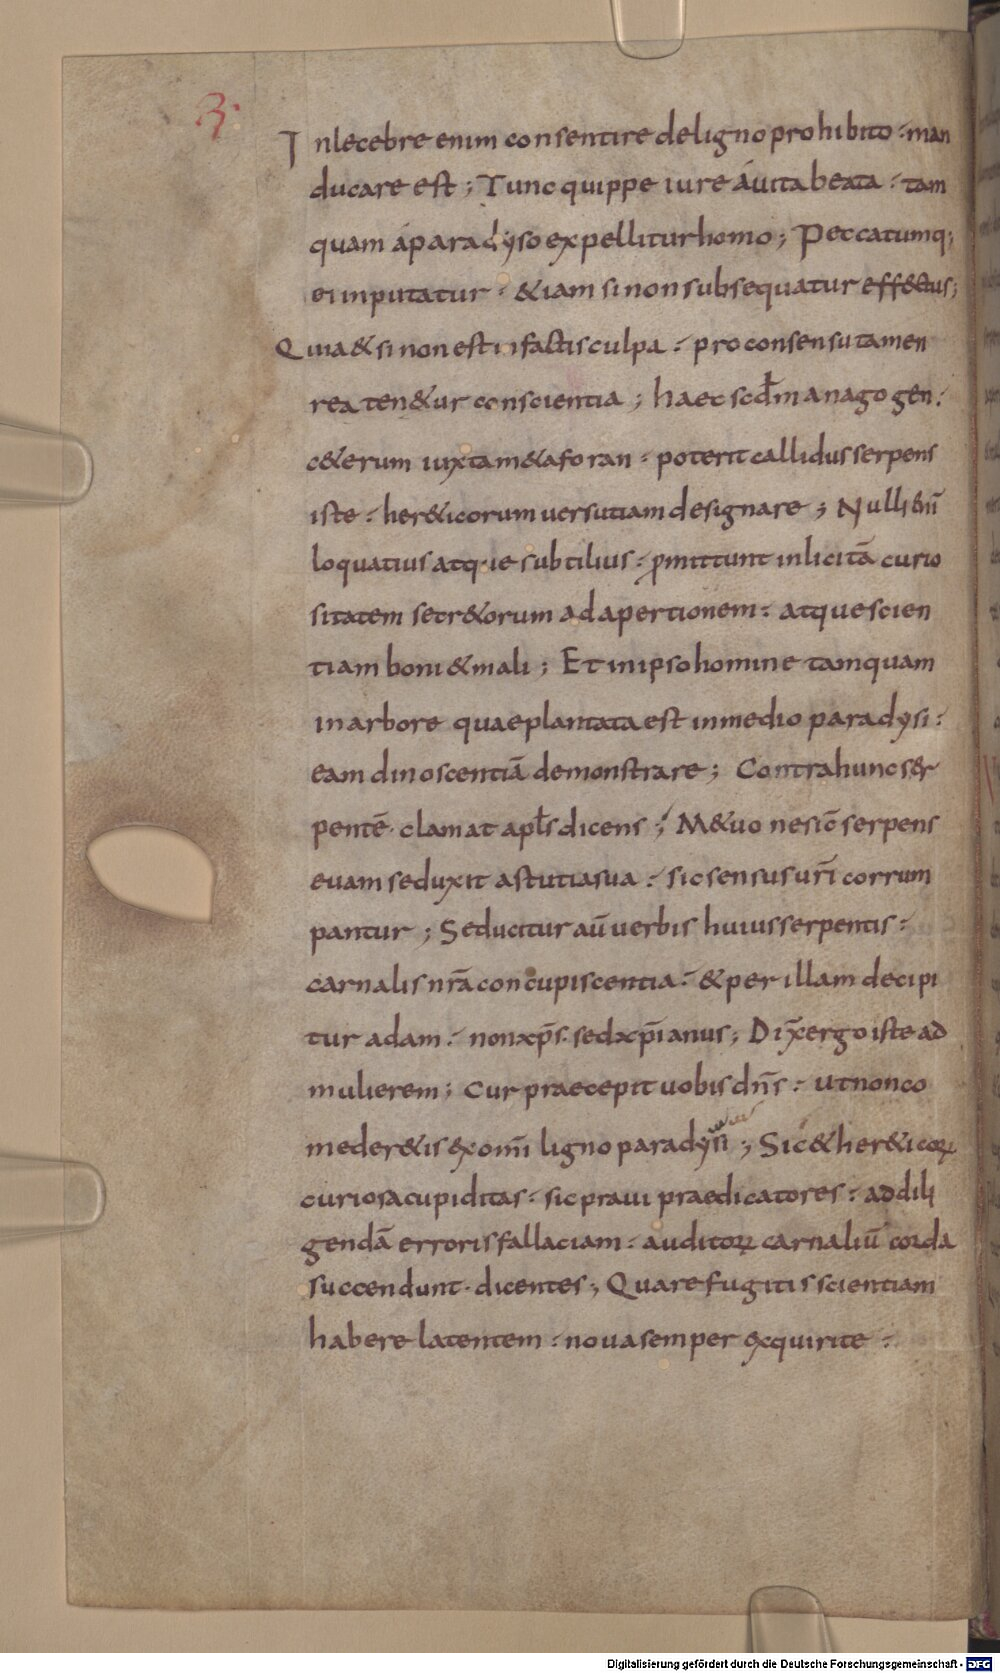 3·
Inlecebre enim consentire de ligno prohibito · man
ducare est ; Tunc quippe iure á uita beata · tam
quam á paradyso expellitur homo ; Peccatumq;
ei inputatur · &iam si non subsequatur eff&ctus ;
Quia & si non est in factis culpa · pro consensu tamen
rea ten&ur conscientia ; haec scd̄m anagogen ·
c&erum iuxta m&aforan · poterit callidus serpens
iste · her&icorum uersutiam designare ; Nulli eni̅
loquatius atq·ie subtilius · p̱mittunt inlicitā curio
sitatem secr&orum adapertionem · atque scien
tiam boni & mali ; Et in ipso homine tamquam
in arbore quae plantata est in medio paradysi ·
eam dinoscentiā demonstrare ; Contra hunc ser
pentē · clamat apłs dicens ; M&uo ne sic̄ serpens
euam seduxit astutia sua · sic sensus ur̄i corrum
pantur ; Seducitur aū uerbis huius serpentis ·
carnalis nr̄a concupiscentia · & per illam decipi
tur adam · non xp̄s · sed xp̄ianus ; Dix̄ ergo iste ad
mulierem ; Cur praecepit uobis dn̄s · ut non co
meder&is ex omī ligno paradysi ; Sic & her&icoꝝ
curiosa cupiditas · sic praui praedicatores · ad dili
gendā erroris fallaciam · auditoꝝ carnaliū corda
succendunt · dicentes ; Quare fugitis scientiam
habere latentem · noua semper exquirite ·
Digitalisierung gefördert durch die Deutsche Forschungsgemeinschaft - DFG